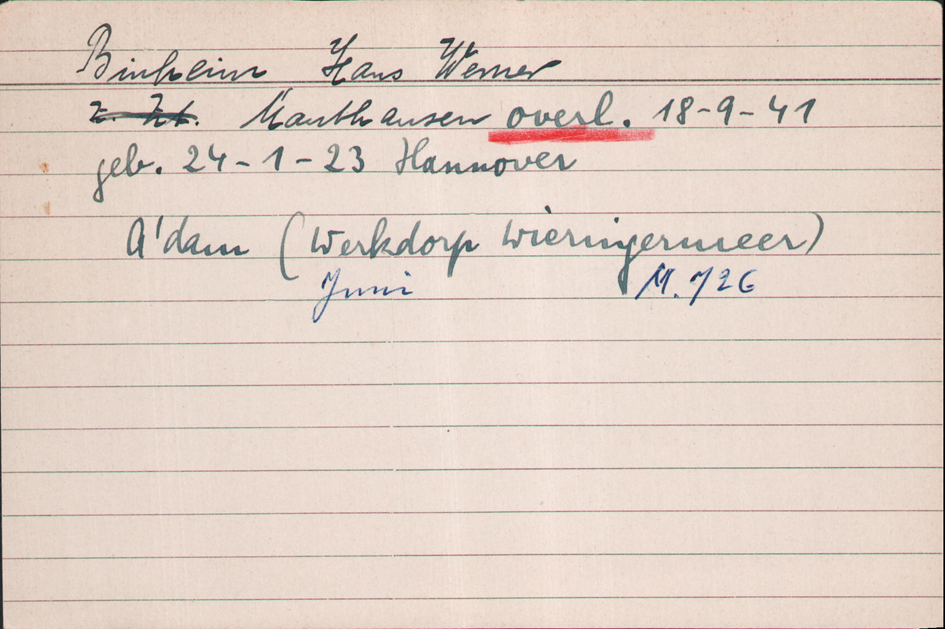 Binheim Hans Werner
z. Zt. Mauthausen overl. 18-9-41
geb. 24-1-23 Hannover
A'dam (Werkdorp Wieringermeer)
Juni M. 726